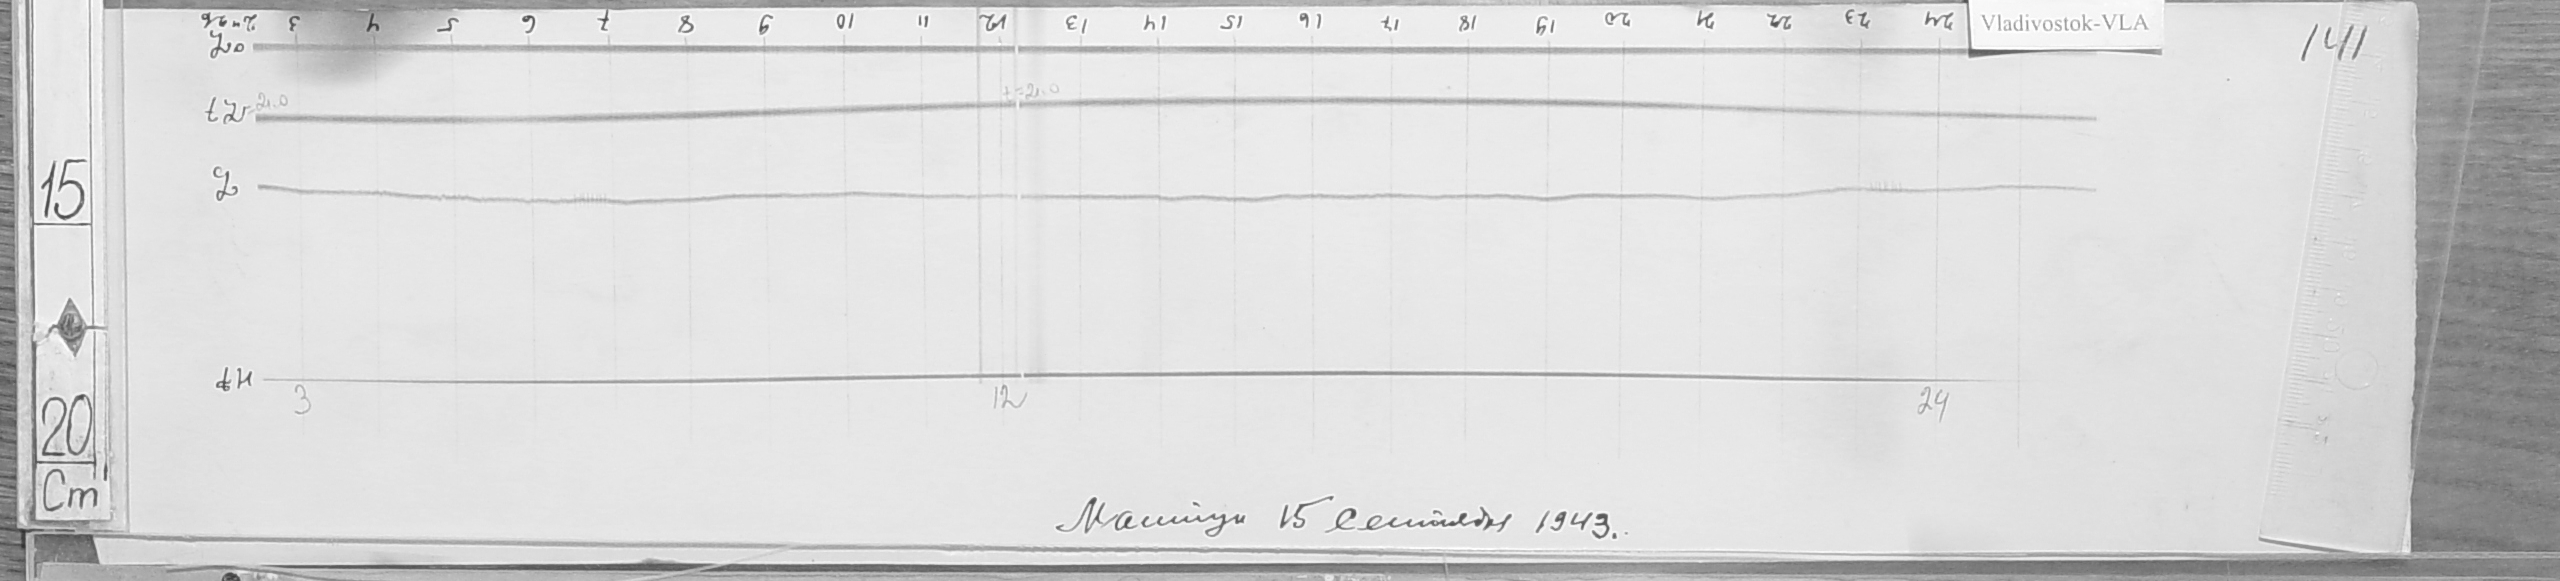 2ч 26 3 4 5 6 7 8 9 10 11 12 13 14 15 16 17 18 19 20 21 22 23 24
Vladivostok-VLA
141
Z0
tZ
t=21.0
Z
15
tH
3 12 24
20
Cm
15 Сентября 1943.